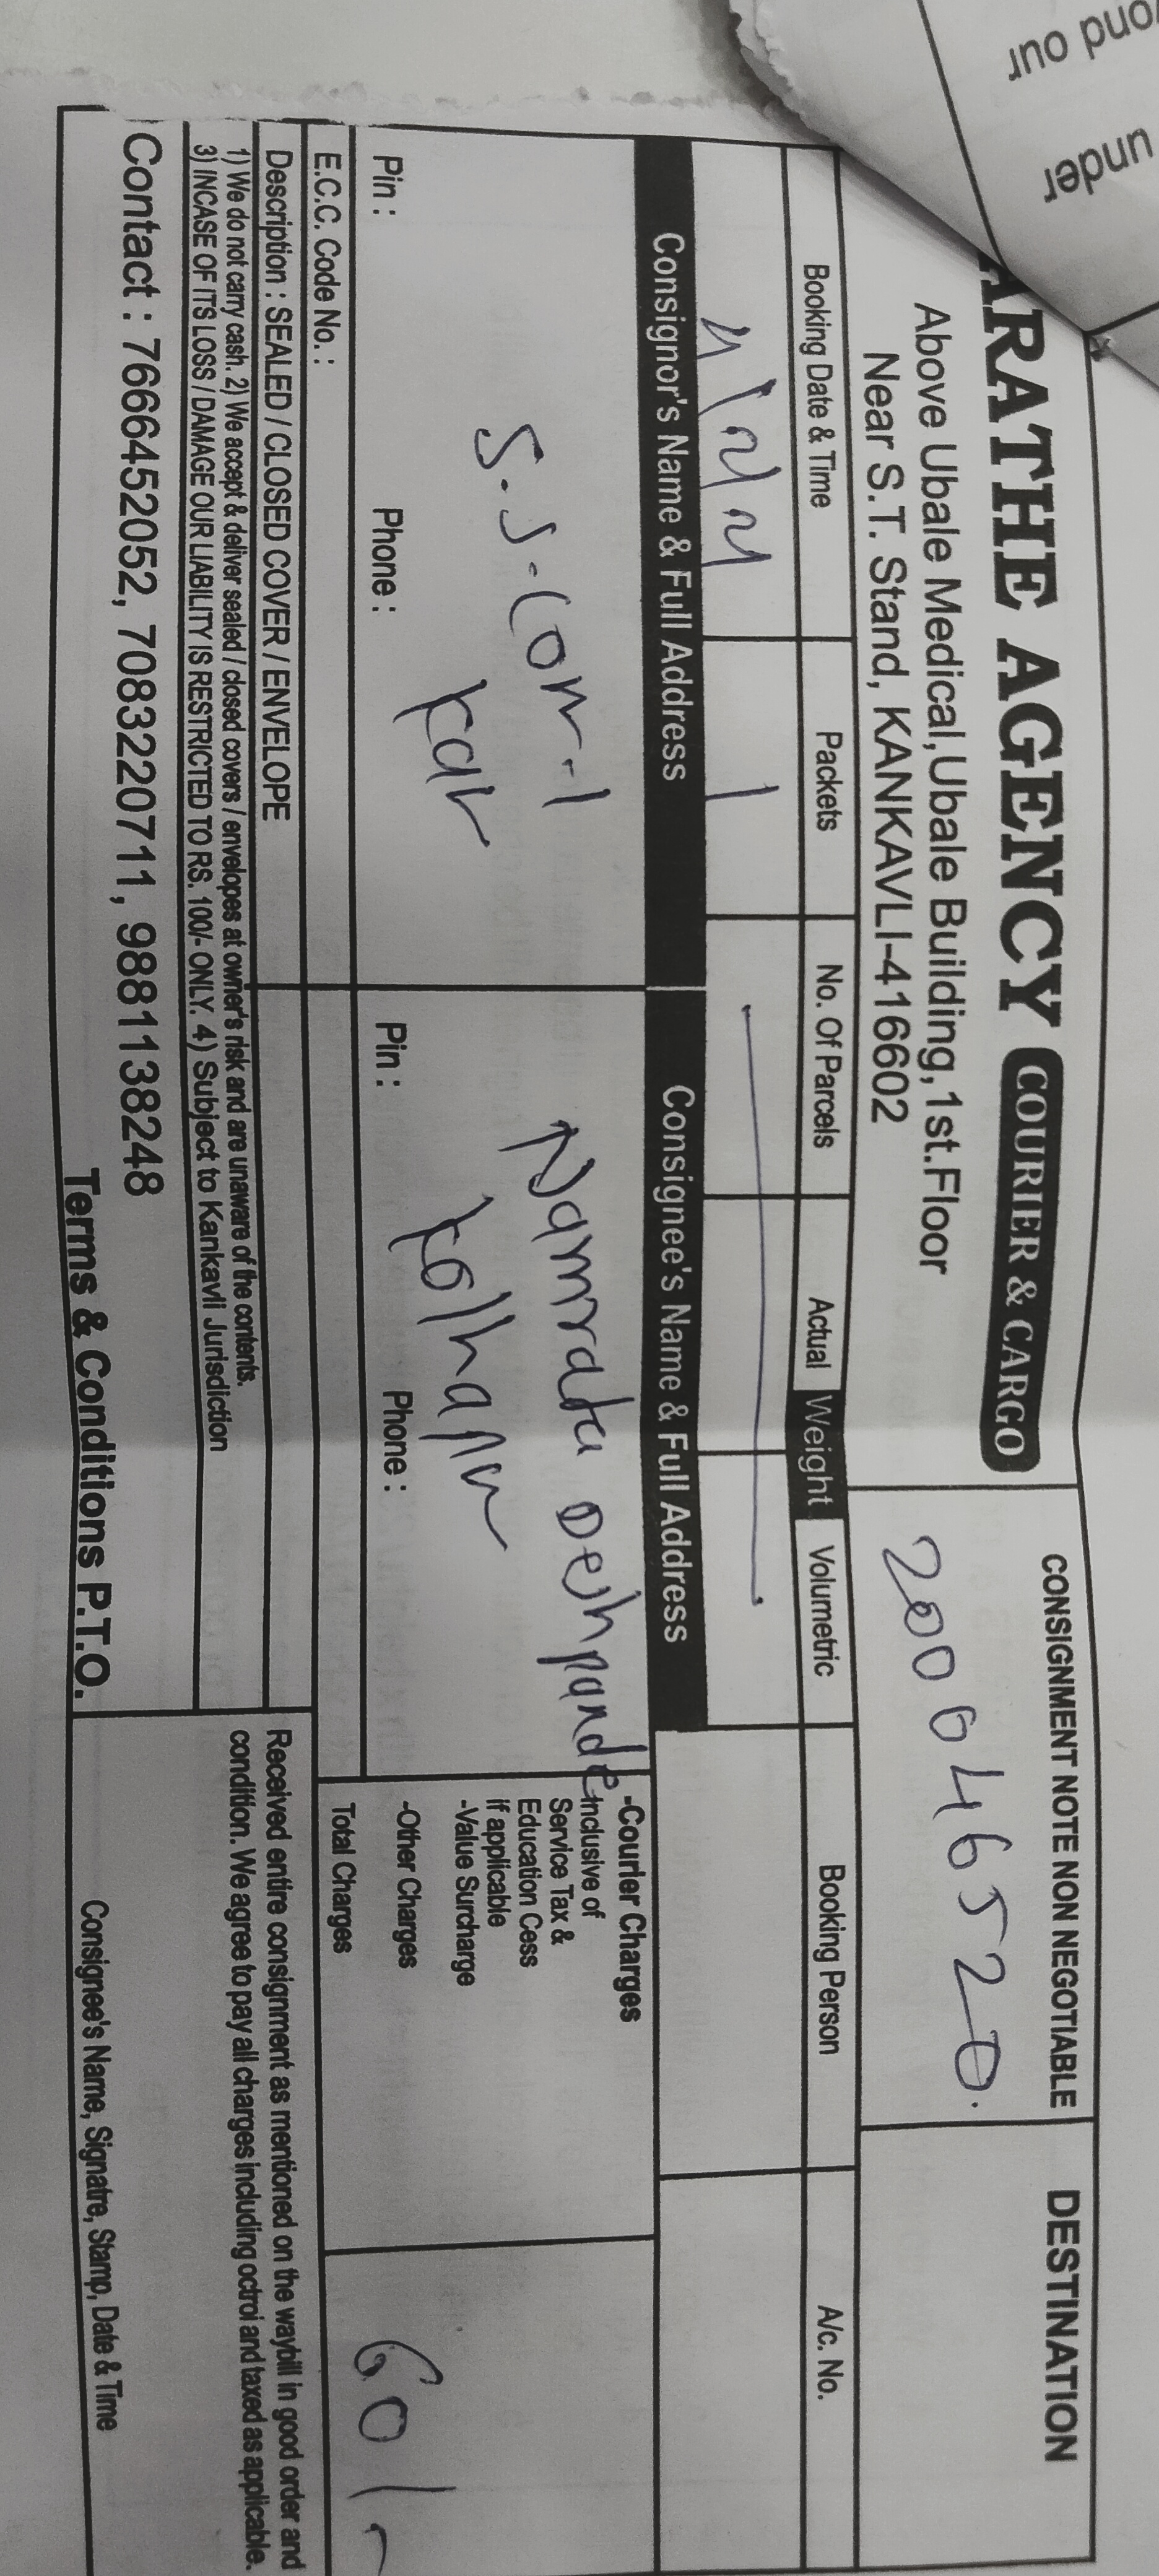 ond our
under
ARATHE AGENCY COURIER & CARGO
Above Ubale Medical, Ubale Building, 1st.Floor
Near S.T. Stand, KANKAVLI-416602
CONSIGNMENT NOTE NON NEGOTIABLE
200646520.
DESTINATION
Booking Date & Time
Packets
No. Of Parcels
Actual Weight Volumetric
Booking Person
A/c. No.
1
Consignor's Name & Full Address
Consignee's Name & Full Address
S.S.Com-1
Kar
Namrata Deshpande
Kolhapur
Pin :
Phone :
Pin :
Phone :
-Courier Charges
Inclusive of
Service Tax &
Education Cess
if applicable
-Value Surcharge
-Other Charges
Total Charges
60/-
E.C.C. Code No. :
Description : SEALED / CLOSED COVER / ENVELOPE
1) We do not carry cash. 2) We accept & deliver sealed / closed covers / envelopes at owner's risk and are unaware of the contents.
3) INCASE OF ITS LOSS / DAMAGE OUR LIABILITY IS RESTRICTED TO RS. 100/- ONLY. 4) Subject to Kankavli Jurisdiction
Contact : 7666452052, 7083220711, 9881138248
Terms & Conditions P.T.O.
Received entire consignment as mentioned on the waybill in good order and
condition. We agree to pay all charges including octroi and taxed as applicable.
Consignee's Name, Signatre, Stamp, Date & Time